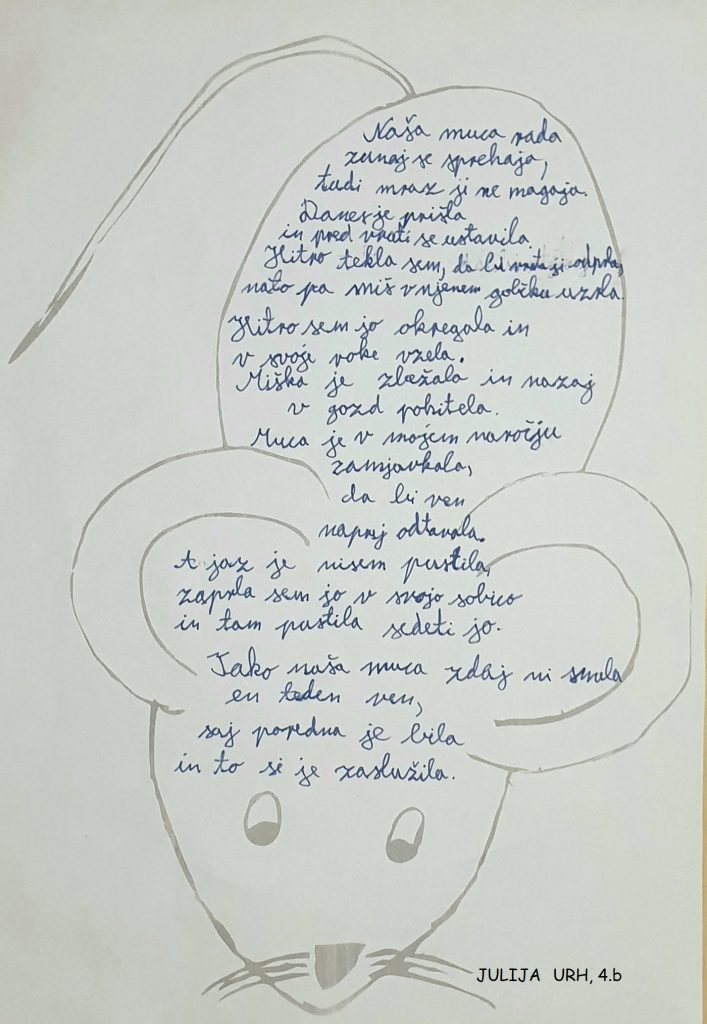 Naša muca rada
zunaj se sprehaja,
tudi mraz ji ne nagaja.
Danes je prišla
in pred vrati se ustavila.
Hitro tekla sem, da bi vrata ji odprla,
nato pa miš v njenem gobčku uzrla.
Hitro sem jo okregala in
v svoje roke vzela.
Miška je zbežala in nazaj
v gozd pohitela.
Muca je v mojem naročju
zamjavkala,
da bi ven
naprej odtavala.
A jaz je nisem pustila,
zaprla sem jo v svojo sobico
in tam pustila sedeti jo.
Tako naša muca zdaj ni smela
en teden ven,
saj poredna je bila
in to si je zaslužila.
JULIJA URH, 4.b